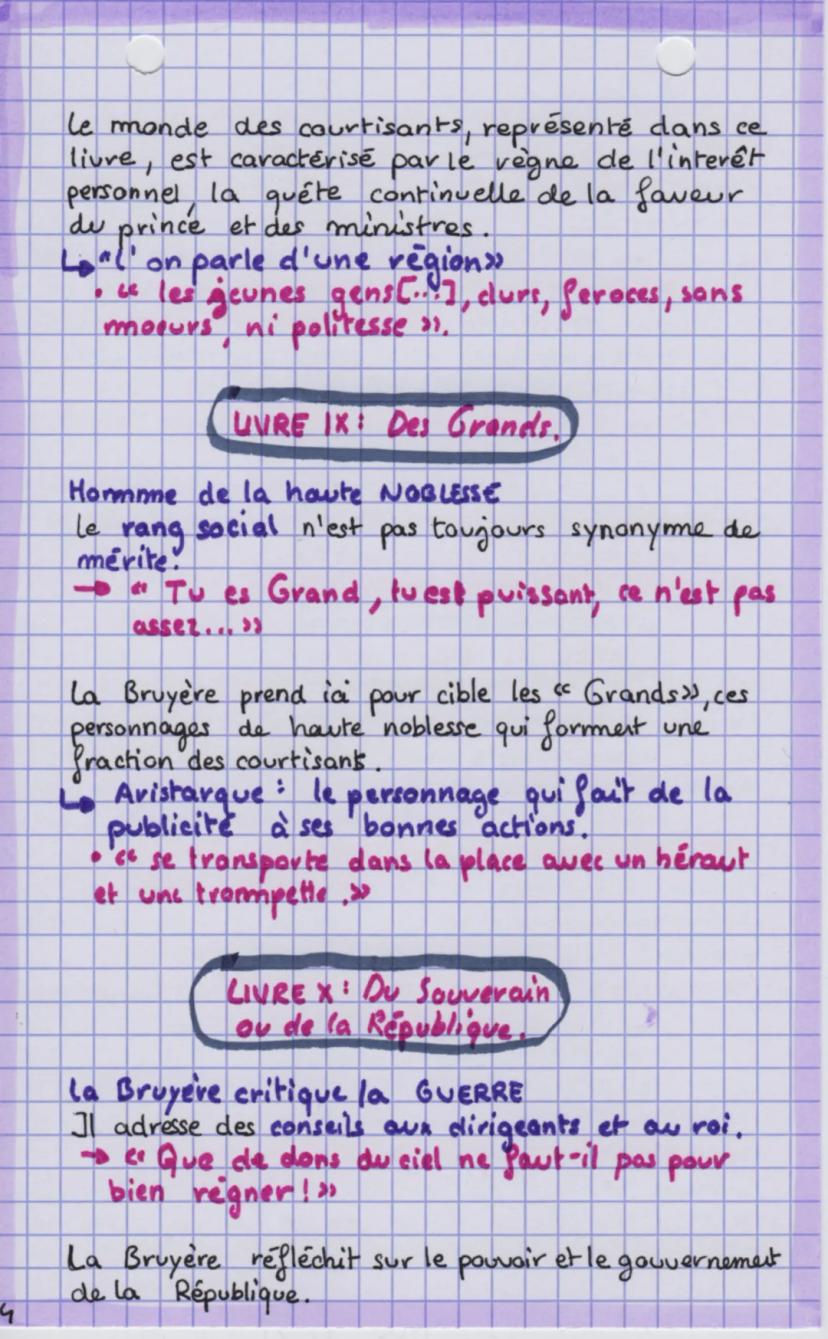 Le monde des courtisants, représenté dans ce
livre, est caractérisé par le règne de l'interêt
personnel, la quéte continuelle de la faveur
du prince et des ministres.
↳ "l'on parle d'une région»
• « les jeunes gens[...], durs, feroces, sans
moeurs, ni politesse ».
LIVRE IX : Des Grands.
Hommme de la haute NOBLESSE
Le rang social n'est pas toujours synonyme de
mérite.
→ « Tu es Grand, tu est puissant, ce n'est pas
assez... »
La Bruyère prend ici pour cible les « Grands», ces
personnages de haute noblesse qui forment une
fraction des courtisants.
↳ Aristarque : le personnage qui fait de la
publicité à ses bonnes actions.
• « se transporte dans la place avec un héraut
et une trompette .»
LIVRE X : Du Souverain
ou de la République.
La Bruyère critique la GUERRE
Il adresse des conseils aux dirigeants et au roi.
→ « Que de dons du ciel ne faut-il pas pour
bien régner ! »
La Bruyère réfléchit sur le pouvoir et le gouvernement
de la République.
4